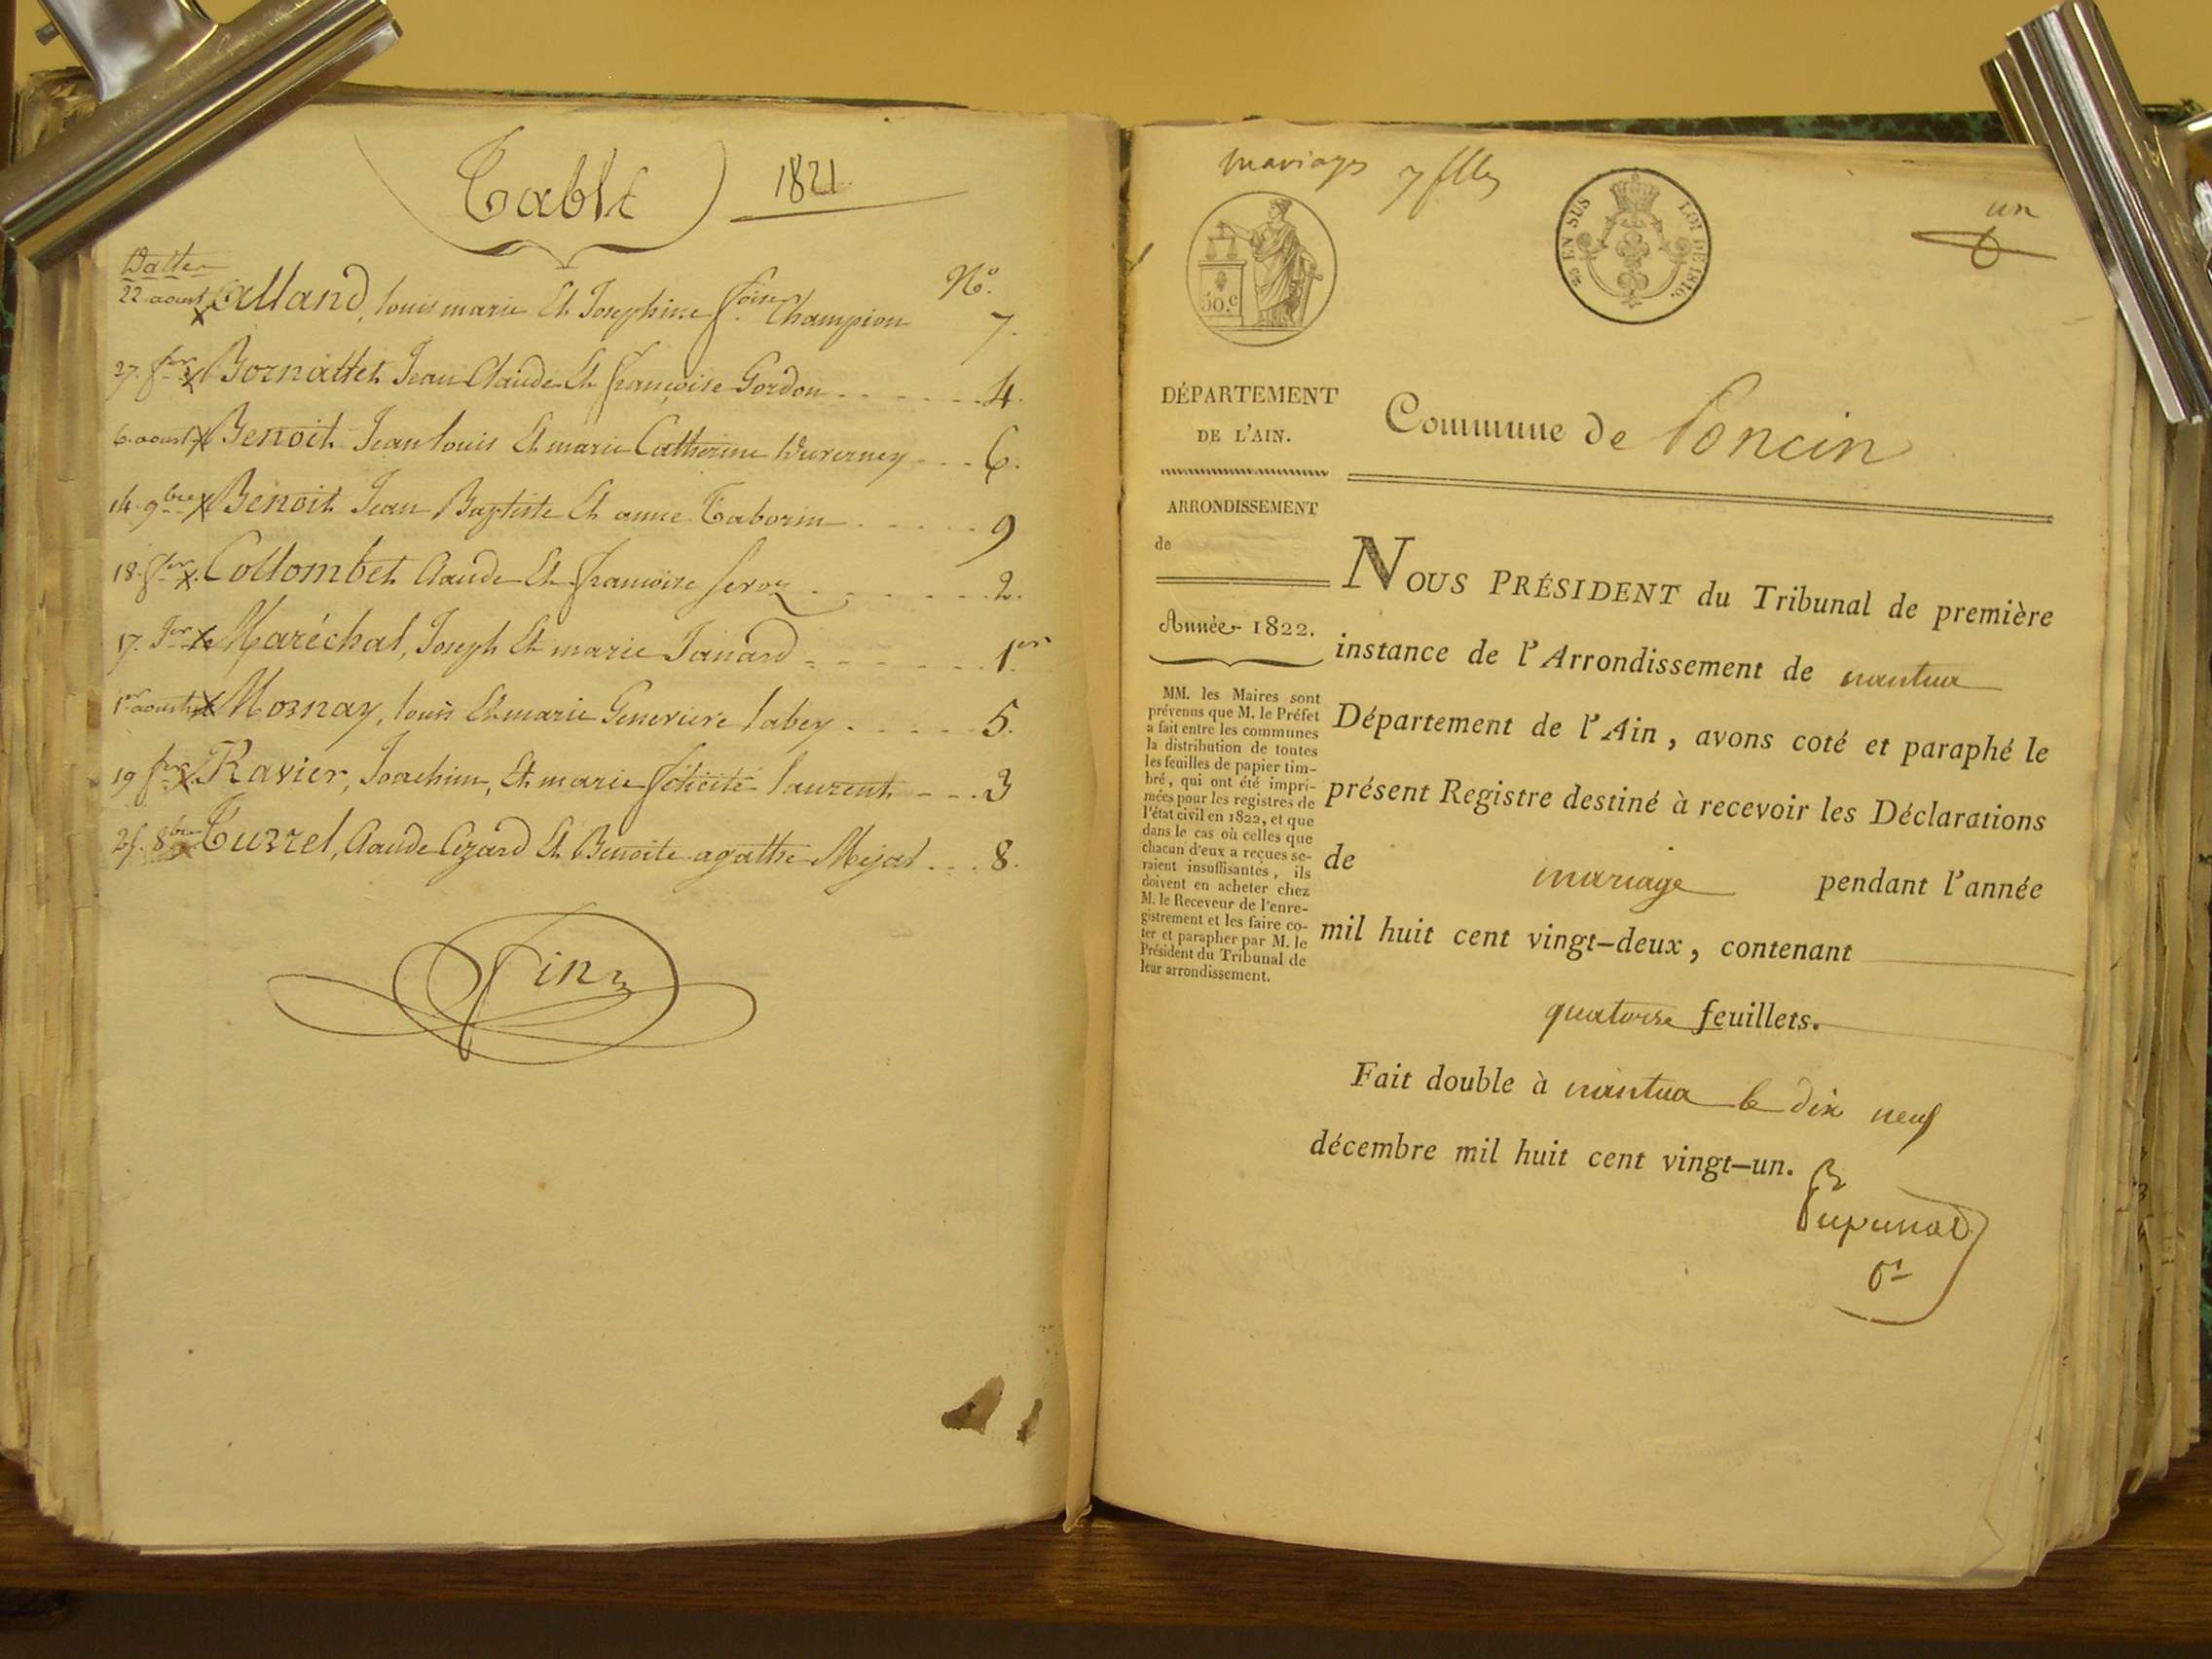 Table 1821
Dattes
N.º
22. aoust Alland, louis marie Et Josephine f.oise Champion 7.
27. f.er Bornattet Jean Claude Et françoise Gordon . . . . . . 4.
6. aoust Benoit Jean louis Et marie Catherine Duverney . . . 6.
14. 9.bre Benoit Jean Baptiste Et anne Taborin . . . . . 9
18. f.er Collombet Claude Et françoise . . . . . . 2.
17. J.er Maréchal, Joseph Et marie Janard . . . . . . . 1.er
1.er aoust Mornay, louis Et marie Genevieve labey . . . . . 5.
19 f.er Ravier, Joachim, Et marie félicité laurent . . . 3
25. 8.bre Turrel, Claude Cezard Et Benoite agathe Mejat . . . 8.
Fin
mariages 7 flles
un
50.c
¼ EN SUS LOI DE 1816.
DÉPARTEMENT
DE L'AIN.
ARRONDISSEMENT
de
Année 1822.
MM. les Maires sont
prévenus que M. le Préfet
a fait entre les communes
la distribution de toutes
les feuilles de papier tim-
bré, qui ont été impri-
mées pour les registres de
l'état civil en 1822, et que
dans le cas où celles que
chacun d'eux a reçues se-
raient insuffisantes, ils
doivent en acheter chez
M. le Receveur de l'enre-
gistrement et les faire co-
ter et parapher par M. le
Président du Tribunal de
leur arrondissement.
Commune de Poncin
NOUS PRÉSIDENT du Tribunal de première
instance de l'Arrondissement de nantua
Département de l'Ain, avons coté et paraphé le
présent Registre destiné à recevoir les Déclarations
de mariage pendant l'année
mil huit cent vingt-deux, contenant
quatorze feuillets.
Fait double à nantua le dix neuf
décembre mil huit cent vingt-un.